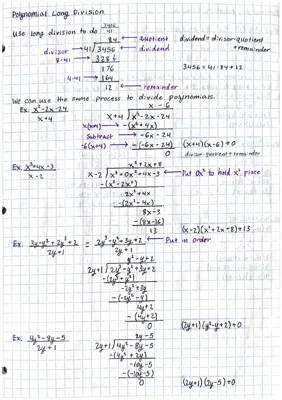 Polynomial Long Division
Use long division to do 3456/41
84 ← quotient    dividend = divisor·quotient + remainder
divisor → 41 ) 3456 ← dividend
8·41 → 328↓    3456 = 41·84 + 12
176
4·41 → 164
12 ← remainder
We can use the same process to divide polynomials.
Ex: x²-2x-24 / x+4
x - 6
x+4 ) x²-2x-24
x(x+4) → -(x²+4x)
Subtract → -6x-24
-6(x+4) → -(-6x-24)    (x+4)(x-6)+0
0    divisor·quotient+remainder
Ex: x³+4x-3 / x-2
x²+2x+8
x-2 ) x³+0x²+4x-3 ← Put 0x² to hold x² place
-(x³-2x²)
2x²+4x
-(2x²-4x)
8x-3
-(8x-16)
13    (x-2)(x²+2x+8)+13
Ex: 3y-y²+2y³+2 / 2y+1 = 2y³-y²+3y+2 / 2y+1 ← Put in order
y²-y+2
2y+1 ) 2y³-y²+3y+2
-(2y³+y²)
-2y²+3y
-(-2y²-y)
4y+2
-(4y+2)
0    (2y+1)(y²-y+2)+0
Ex: 4y²-8y-5 / 2y+1
2y-5
2y+1 ) 4y²-8y-5
-(4y²+2y)
-10y-5
-(-10y-5)
0    (2y+1)(2y-5)+0